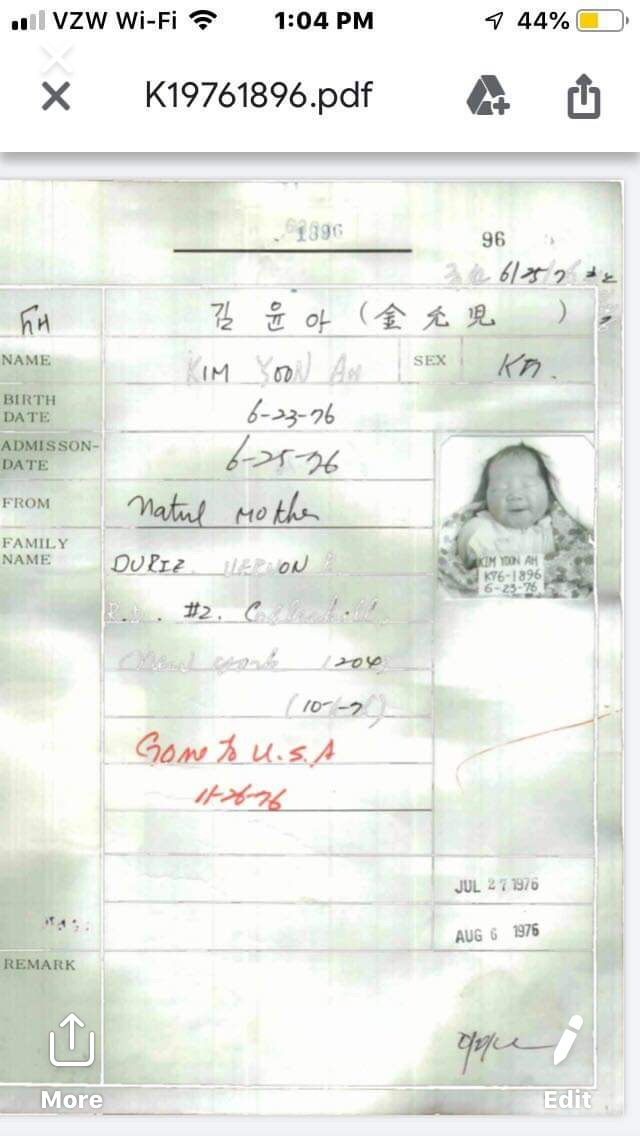 VZW Wi-Fi 1:04 PM 44%
K19761896.pdf
1896
96
6/25/7
김 윤 아 (金 允 児 )
NAME KIM YOON AH SEX
BIRTH DATE 6-23-76
ADMISSON-DATE 6-25-76
FROM Natul Mother
FAMILY NAME DURIE VERNON
#2.
New York 1204
(10-1-76)
KIM YOON AH
K76-1896
6-23-76
Gone to U.S.A
11-26-76
JUL 27 1976
AUG 6 1976
REMARK
More Edit